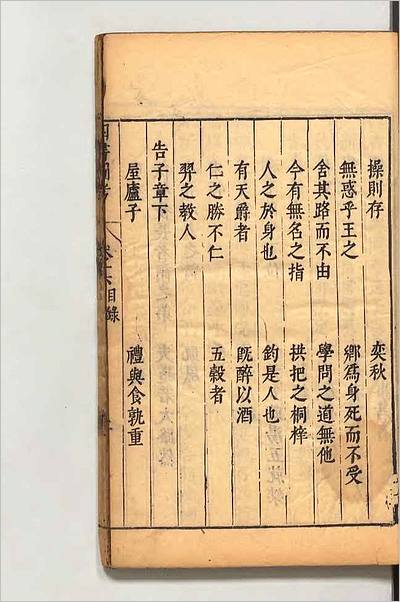 操則存　奕秋
無惑乎王之　鄉爲身死而不受
舍其路而不由　學問之道無他
今有無名之指　拱把之桐梓
人之於身也　鈞是人也
有天爵者　既醉以酒
仁之勝不仁　五穀者
羿之教人
告子章下
屋廬子　禮與食孰重
目錄